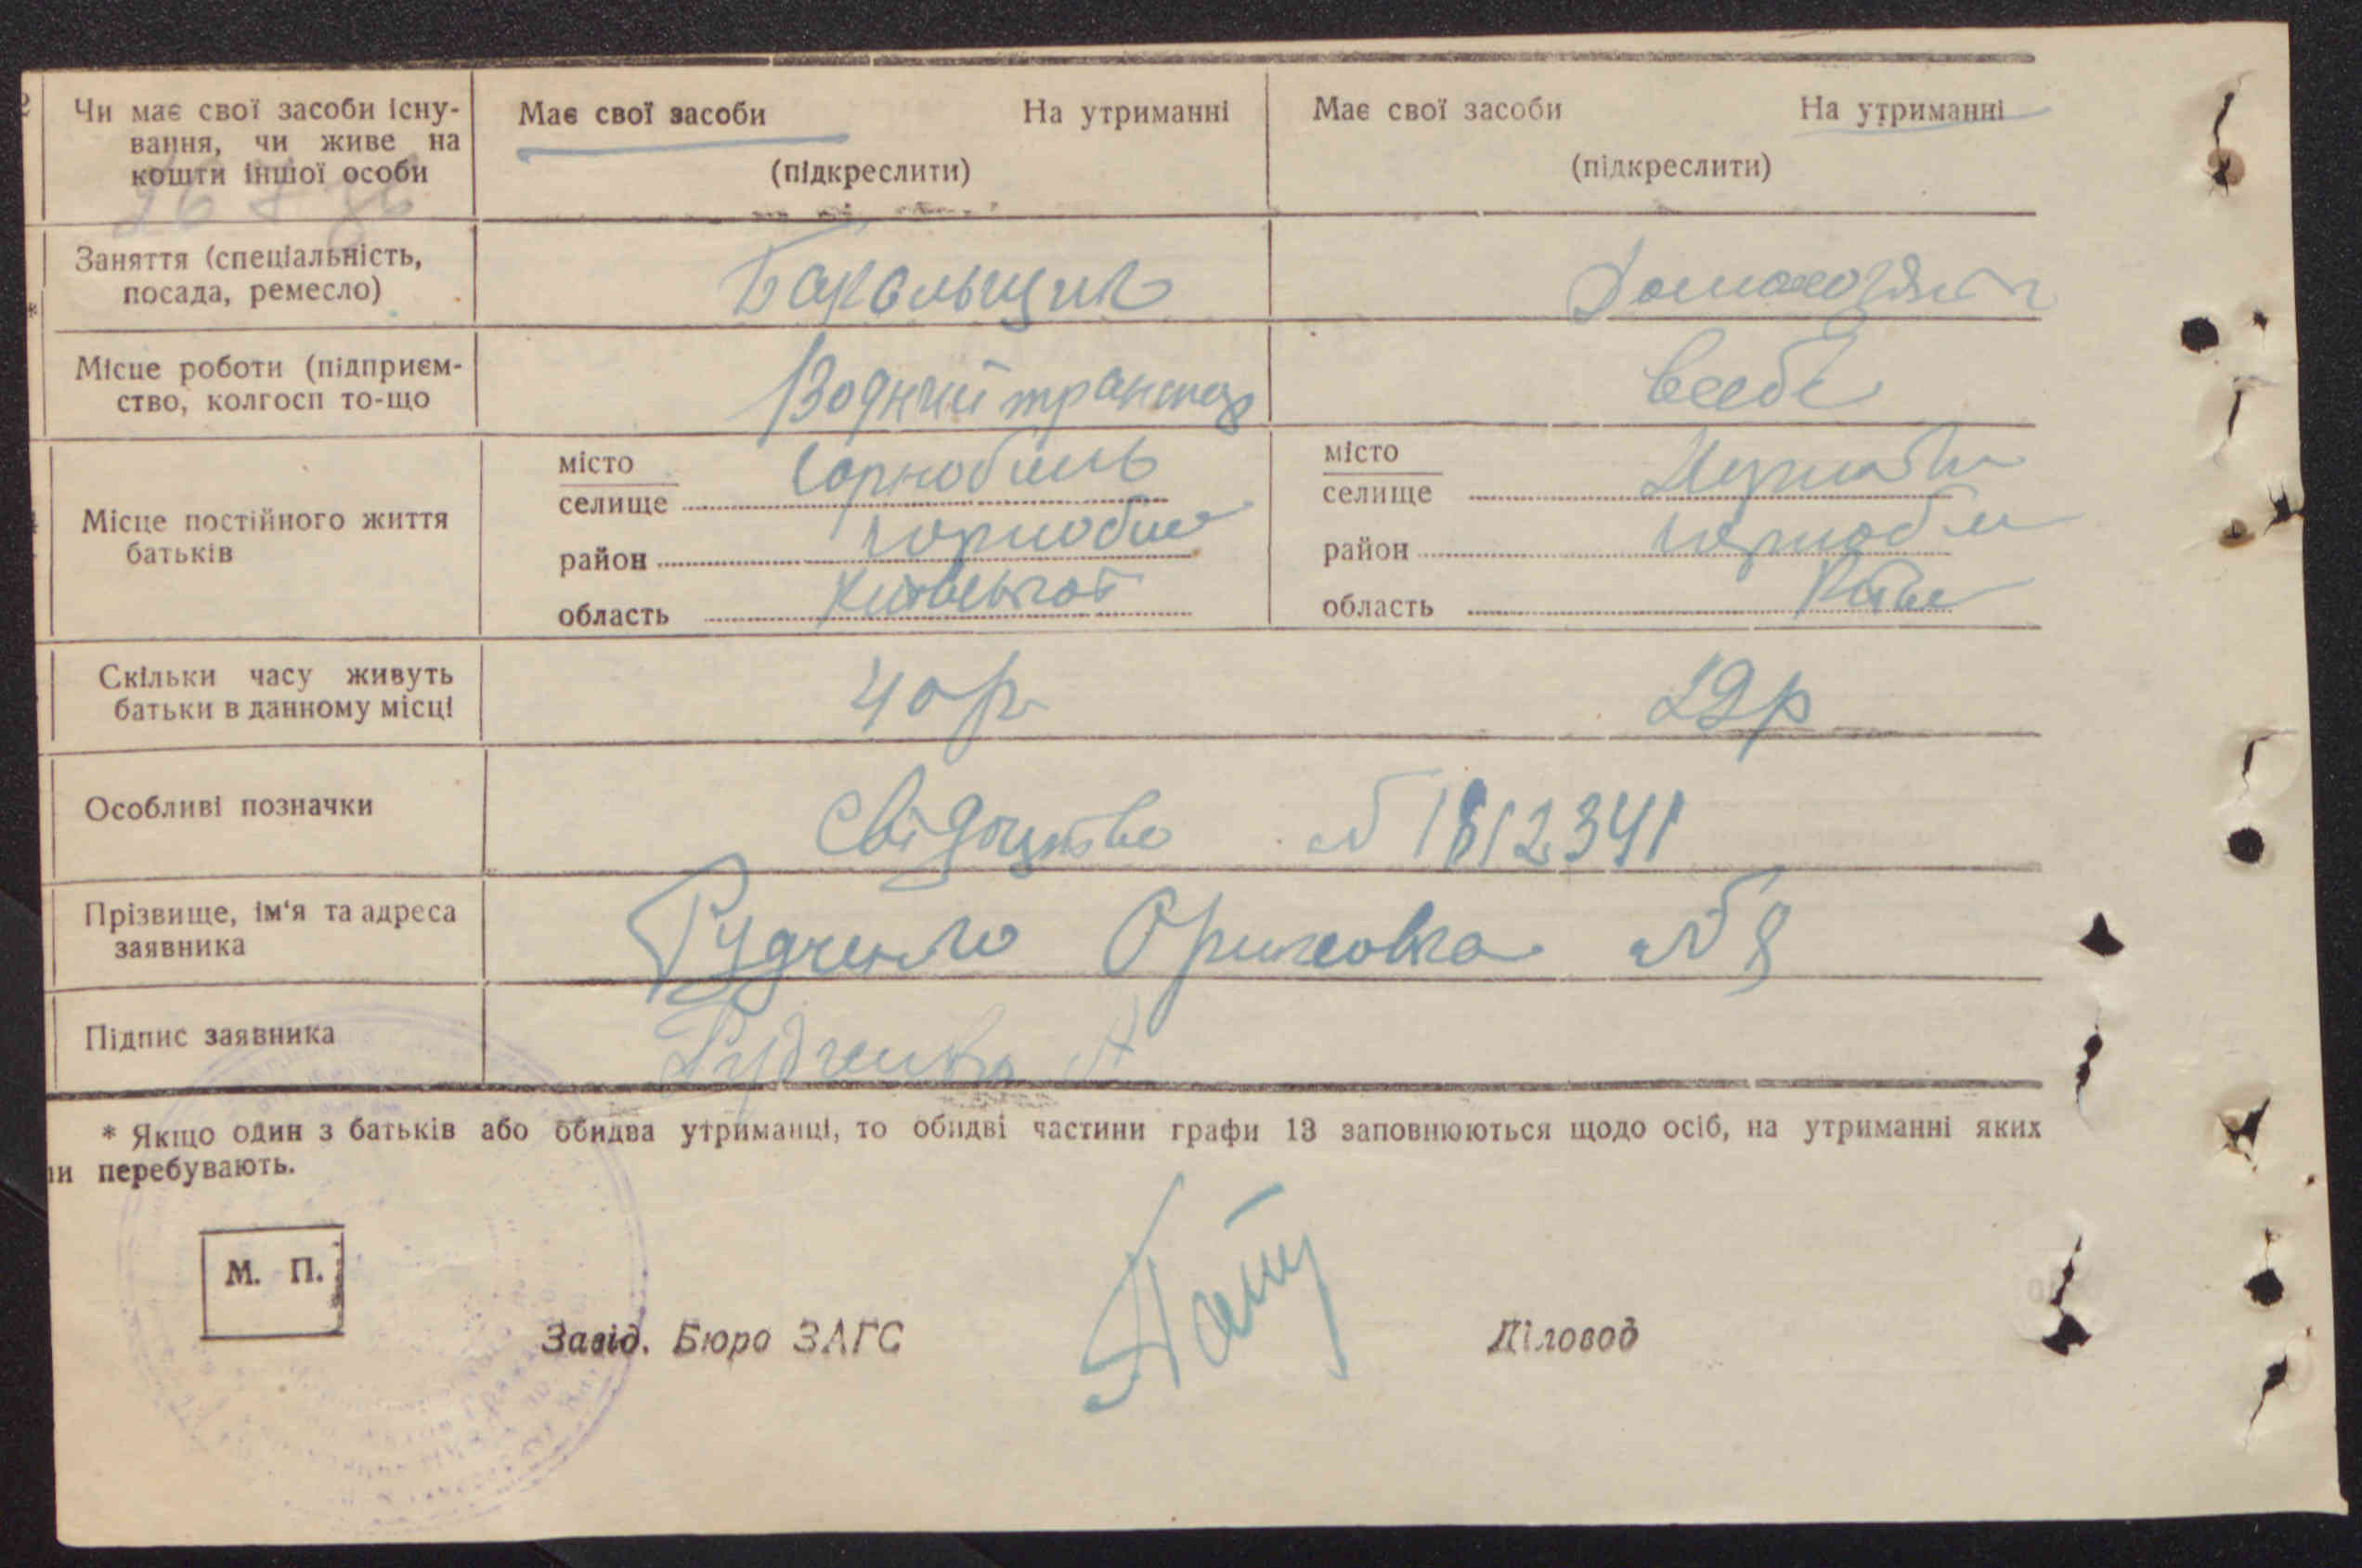 Чи має свої засоби існу-
вання, чи живе на
кошти іншої особи
Має свої засоби На утриманні
(підкреслити)
Має свої засоби На утриманні
(підкреслити)
Заняття (спеціальність,
посада, ремесло)
Бакольщик
Домохозяйка
Місце роботи (підприєм-
ство, колгосп то-що
Водний транспор
всебе
Місце постійного життя
батьків
місто
селище Чорнобиль
район Чорнобил
область Київської
місто
селище
район Чорнобил
область Київ
Скільки часу живуть
батьки в данному місці
40 р
22р
Особливі позначки
Свідоцтво № 1812341
Прізвище, ім'я та адреса
заявника
Рудченко № 8
Підпис заявника
Рудченко А
* Якщо один з батьків або обидва утриманці, то обидві частини графи 13 заповнюються щодо осіб, на утриманні яких
ни перебувають.
М. П.
Завід. Бюро ЗАГС
Діловод